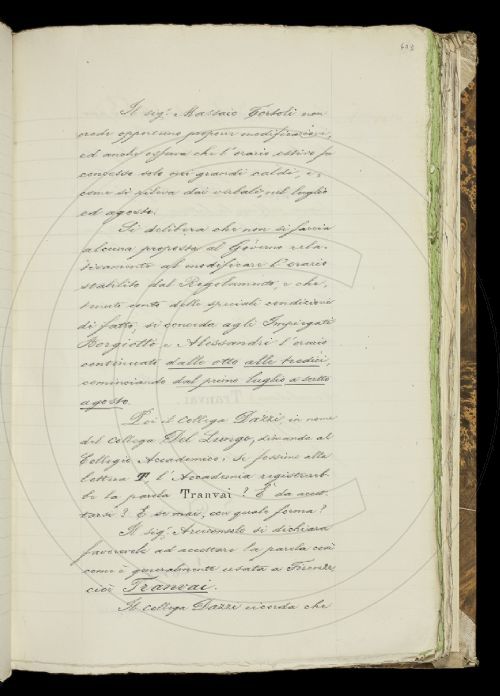 423
Il sig.r Massaio Tortoli non
crede opportuno proporre modificazioni,
ed anche osserva che l'orario estivo fu
concesso solo nei grandi caldi, e,
come si rileva dai verbali, nel luglio
ed agosto.
Si delibera che non si faccia
alcuna proposta al Governo rela-
tivamente al modificare l'orario
stabilito dal Regolamento, e che,
tenuto conto delle speciali condizioni
di fatto, si conceda agli Impiegati
Borgiotti e Alessandri l'orario
continuato dalle otto alle tredici,
cominciando dal primo luglio a tutto
agosto.
Poi il Collega Dazzi, in nome
del Collega Del Lungo, dimanda al
Collegio Accademico: Se fossimo alla
lettera T, l'Accademia registrereb-
be la parola Tranvai? È da accet-
tarsi? E se mai, con quale forma?
Il sig.r Arciconsolo si dichiara
favorevole ad accettare la parola così
come è generalmente usata a Firenze,
cioè Tranvai.
Il Collega Dazzi ricorda che